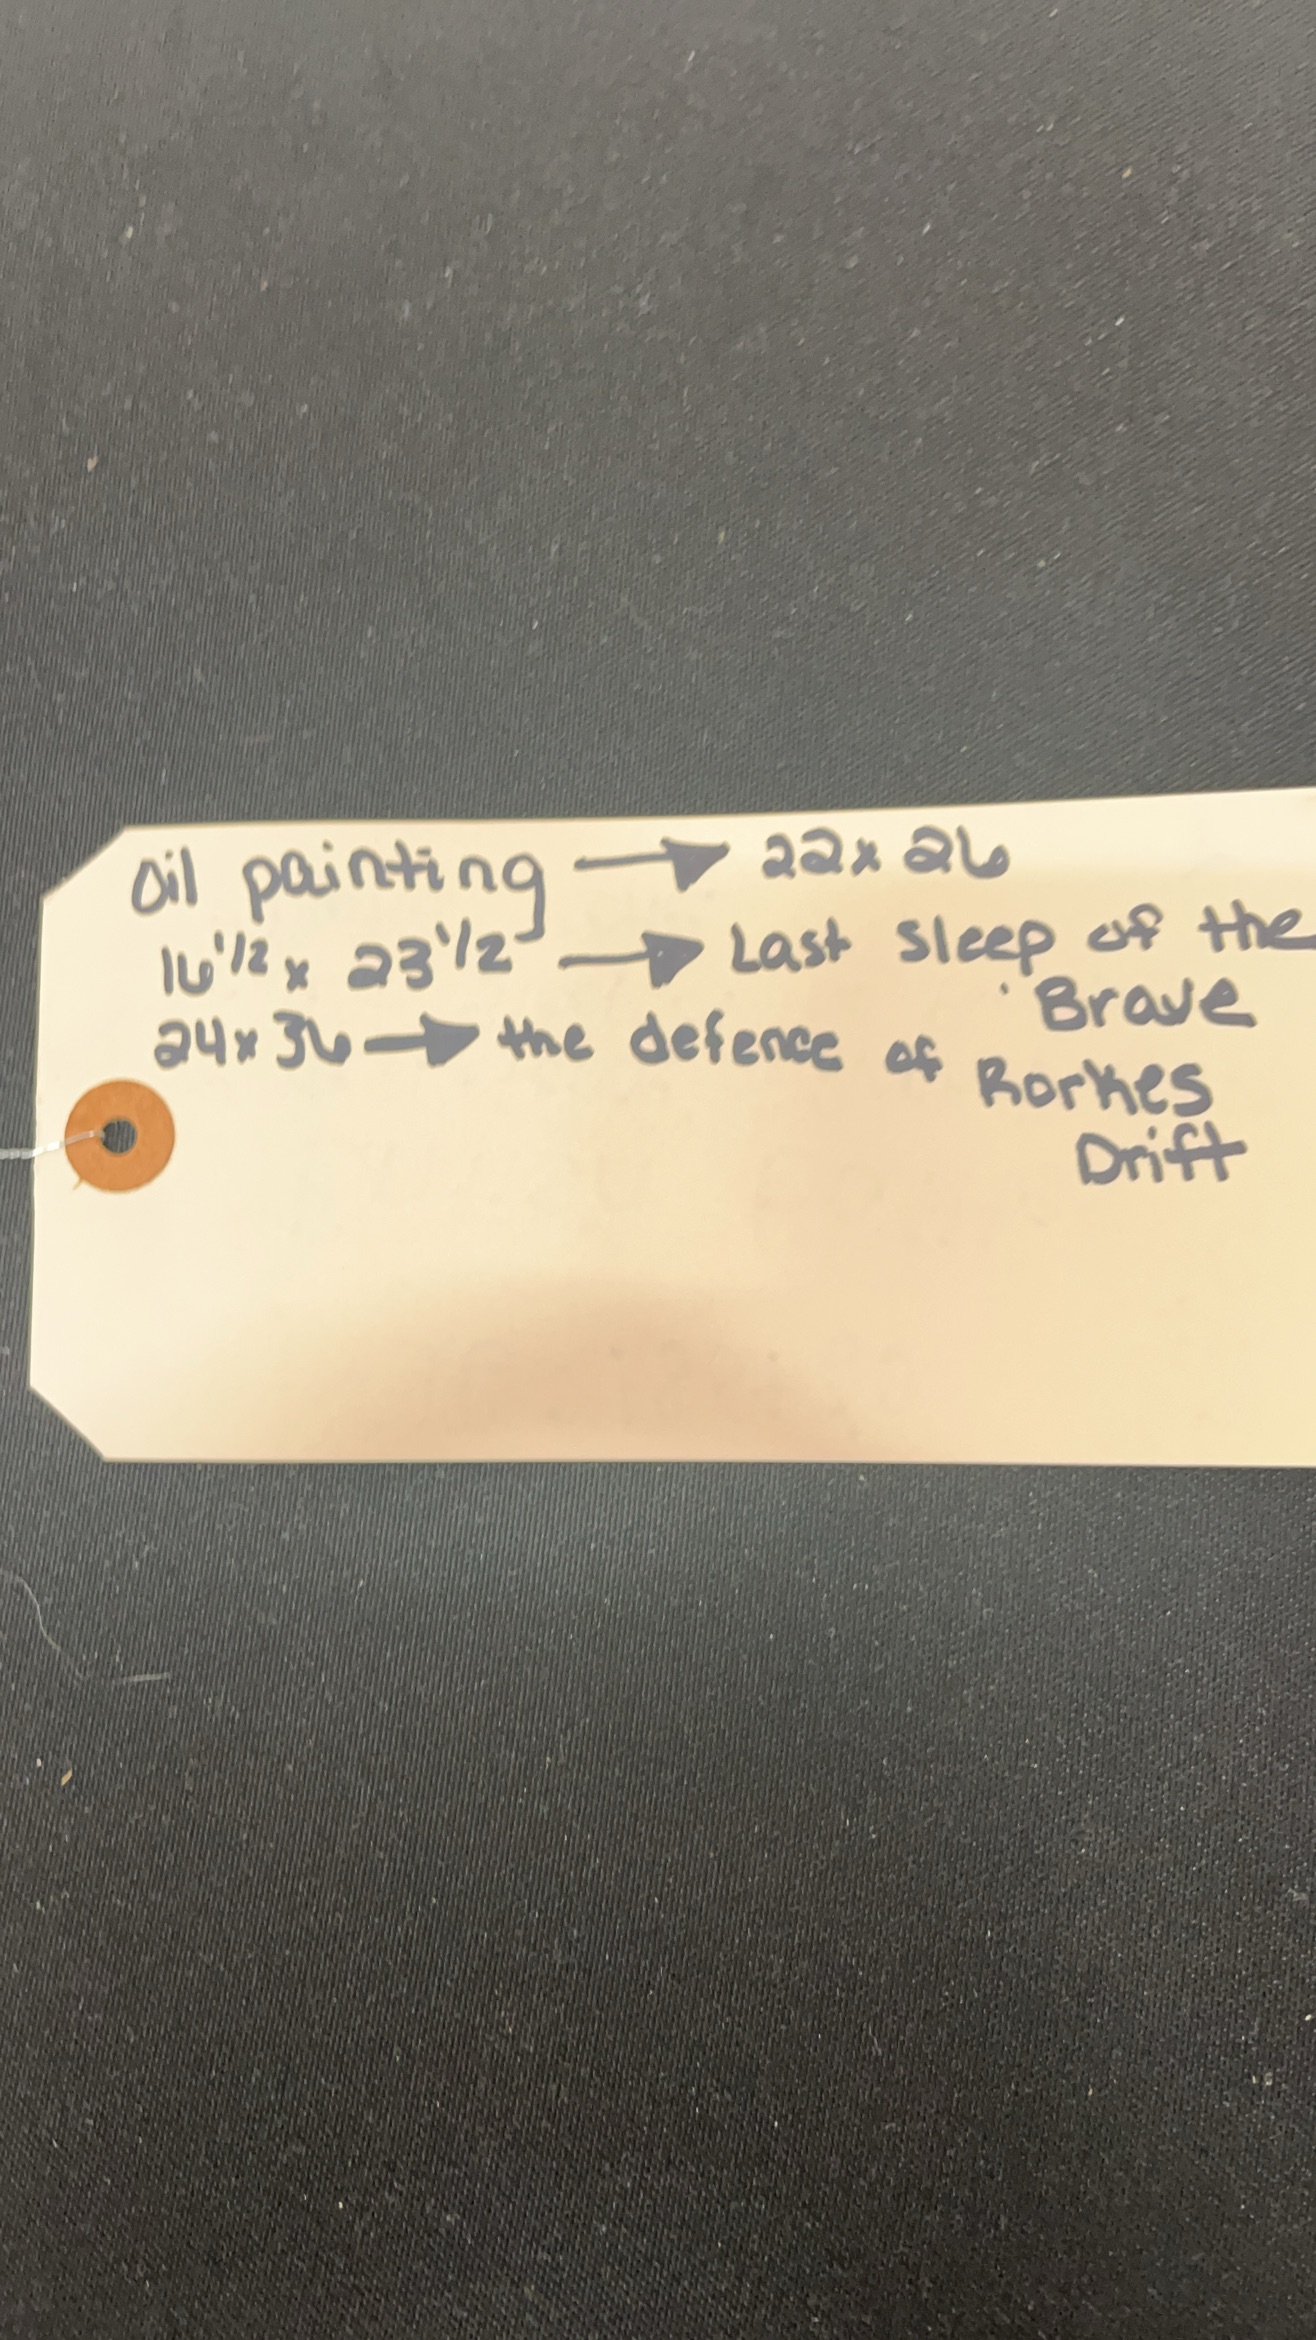 Oil painting → 22x26
16 1/2 x 23 1/2 → Last sleep of the
Brave
24x36 → the defence of Rorkes
Drift